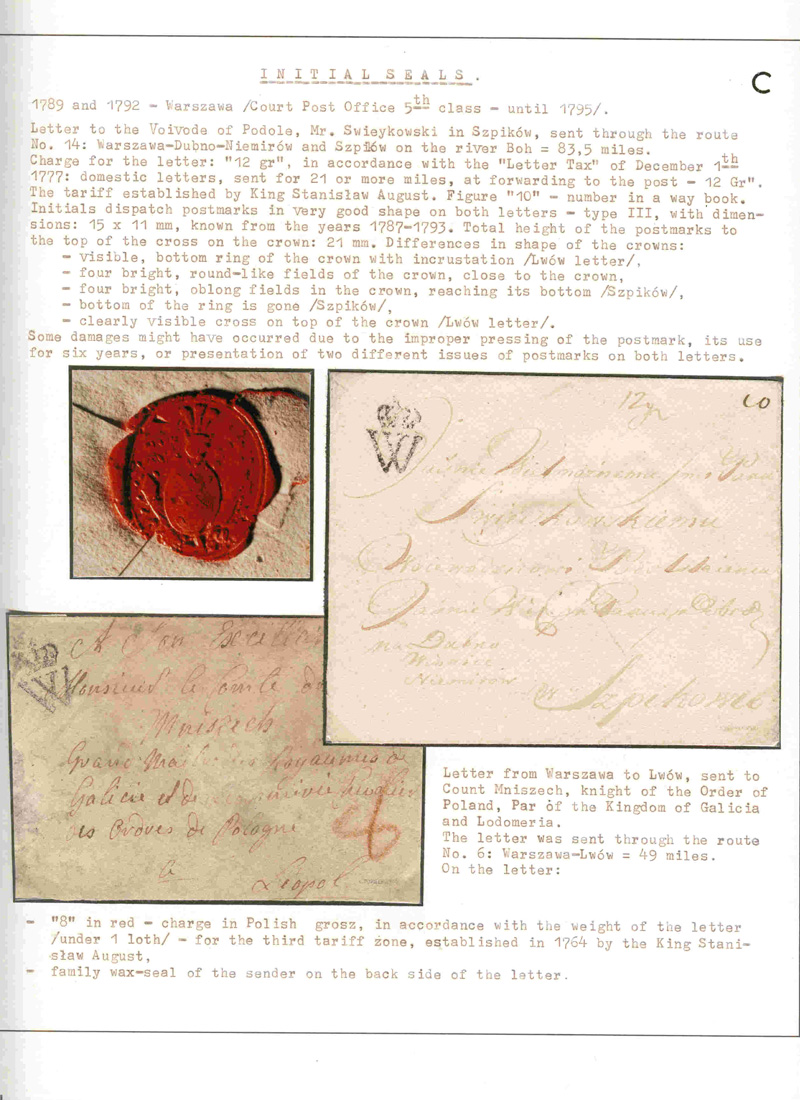 INITIAL SEALS.
C
1789 and 1792 - Warszawa /Court Post Office 5th class - until 1795/.
Letter to the Voivode of Podole, Mr. Swieykowski in Szpików, sent through the route
No. 14: Warszawa-Dubno-Niemirów and Szpików on the river Boh = 83,5 miles.
Charge for the letter: "12 gr", in accordance with the "Letter Tax" of December 1th
1777: domestic letters, sent for 21 or more miles, at forwarding to the post - 12 Gr".
The tariff established by King Stanisław August. Figure "10" - number in a way book.
Initials dispatch postmarks in very good shape on both letters - type III, with dimen-
sions: 15 x 11 mm, known from the years 1787-1793. Total height of the postmarks to
the top of the cross on the crown: 21 mm. Differences in shape of the crowns:
- visible, bottom ring of the crown with incrustation /Lwów letter/,
- four bright, round-like fields of the crown, close to the crown,
- four bright, oblong fields in the crown, reaching its bottom /Szpików/,
- bottom of the ring is gone /Szpików/,
- clearly visible cross on top of the crown /Lwów letter/.
Some damages might have occurred due to the improper pressing of the postmark, its use
for six years, or presentation of two different issues of postmarks on both letters.
12 gr
10
W
na Dubno
Niemirow
W
A Son Excellen
Monsieur le Comte de
Mniszech
Grand des Royaumes de
Galicie et de
des Ordres de Pologne
8
a
Leopol
Letter from Warszawa to Lwów, sent to
Count Mniszech, knight of the Order of
Poland, Par of the Kingdom of Galicia
and Lodomeria.
The letter was sent through the route
No. 6: Warszawa-Lwów = 49 miles.
On the letter:
- "8" in red - charge in Polish grosz, in accordance with the weight of the letter
/under 1 loth/ - for the third tariff zone, established in 1764 by the King Stani-
sław August,
- family wax-seal of the sender on the back side of the letter.